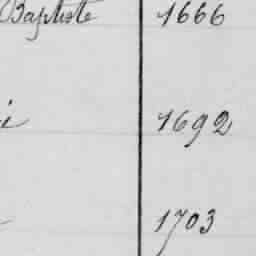 Baptiste 1666
i 1692
1703